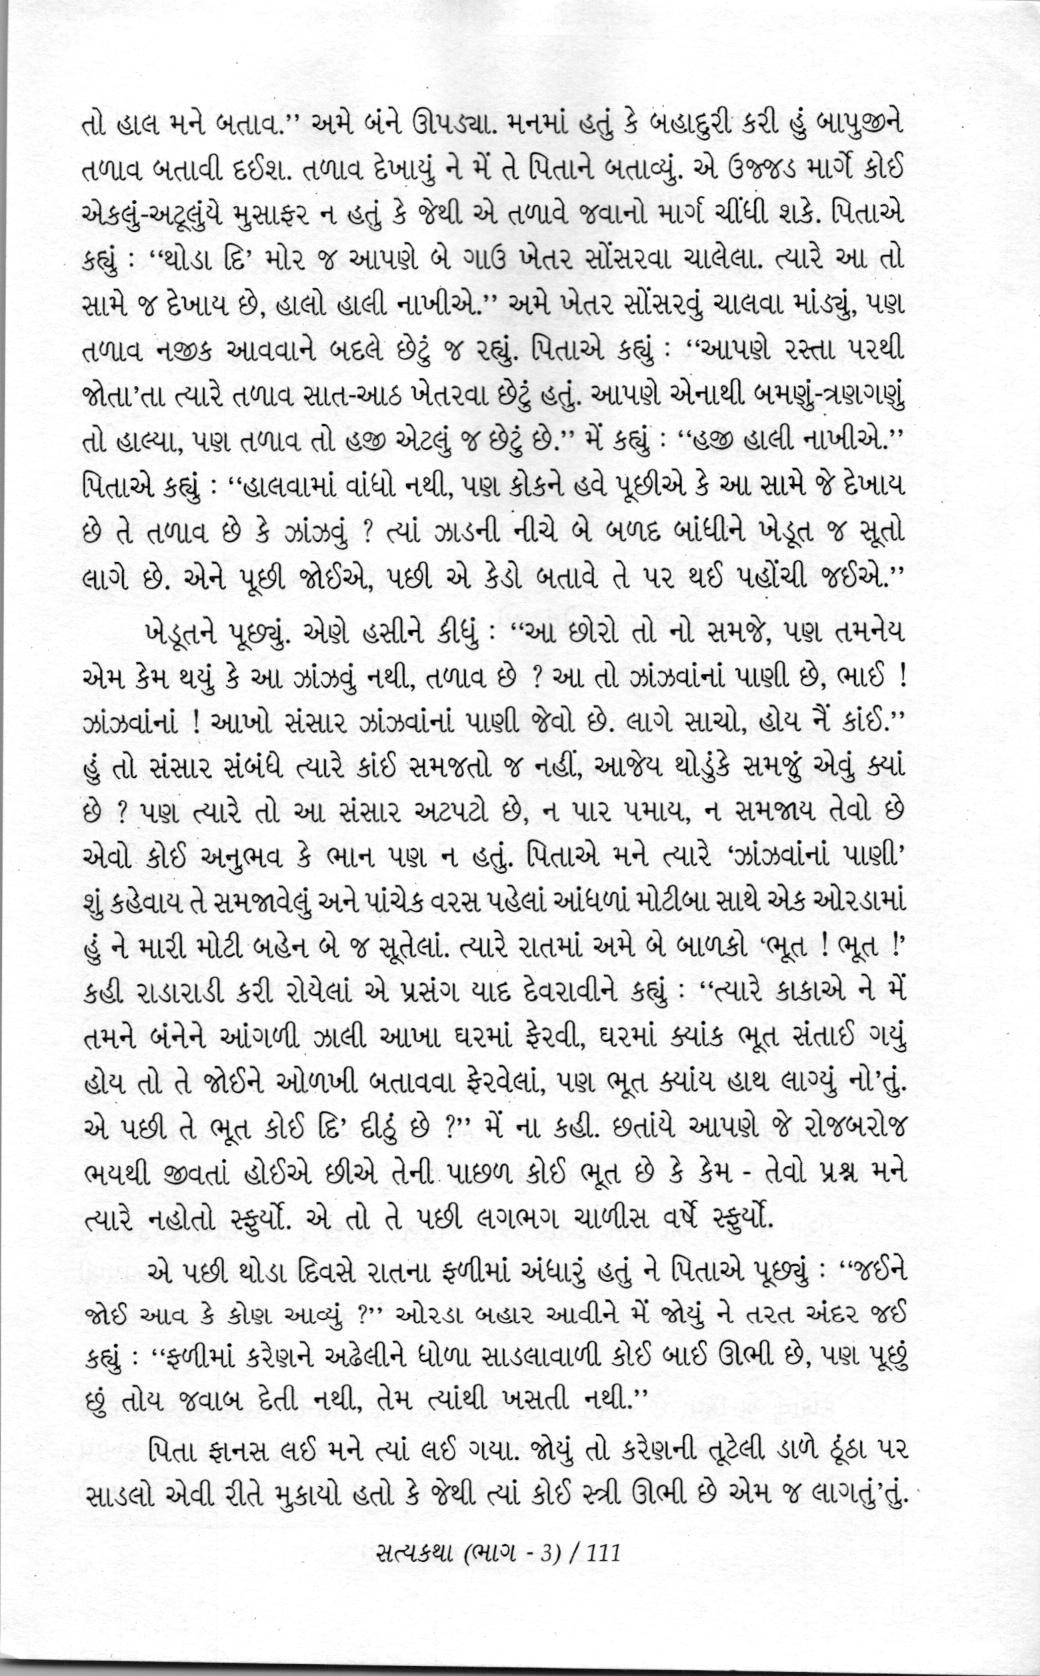 તો હાલ મને બતાવ.’’ અમે બંને ઊપડ્યા. મનમાં હતું કે બહાદુરી કરી હું બાપુજીને
તળાવ બતાવી દઈશ. તળાવ દેખાયું ને મેં તે પિતાને બતાવ્યું. એ ઉજ્જડ માર્ગે કોઈ
એકલું-અટૂલુંયે મુસાફર ન હતું કે જેથી એ તળાવે જવાનો માર્ગ ચીંધી શકે. પિતાએ
કહ્યું : ‘‘થોડા દિ’ મોર જ આપણે બે ગાઉ ખેતર સોંસરવા ચાલેલા. ત્યારે આ તો
સામે જ દેખાય છે, હાલો હાલી નાખીએ.’’ અમે ખેતર સોંસરવું ચાલવા માંડ્યું, પણ
તળાવ નજીક આવવાને બદલે છેટું જ રહ્યું. પિતાએ કહ્યું : ‘‘આપણે રસ્તા પરથી
જોતા’તા ત્યારે તળાવ સાત-આઠ ખેતરવા છેટું હતું. આપણે એનાથી બમણું-ત્રણગણું
તો હાલ્યા, પણ તળાવ તો હજી એટલું જ છેટું છે.’’ મેં કહ્યું : ‘‘હજી હાલી નાખીએ.’’
પિતાએ કહ્યું : ‘‘હાલવામાં વાંધો નથી, પણ કોકને હવે પૂછીએ કે આ સામે જે દેખાય
છે તે તળાવ છે કે ઝાંઝવું ? ત્યાં ઝાડની નીચે બે બળદ બાંધીને ખેડૂત જ સૂતો
લાગે છે. એને પૂછી જોઈએ, પછી એ કેડો બતાવે તે પર થઈ પહોંચી જઈએ.’’
ખેડૂતને પૂછ્યું. એણે હસીને કીધું : ‘‘આ છોરો તો નો સમજે, પણ તમનેય
એમ કેમ થયું કે આ ઝાંઝવું નથી, તળાવ છે ? આ તો ઝાંઝવાંનાં પાણી છે, ભાઈ !
ઝાંઝવાંનાં ! આખો સંસાર ઝાંઝવાંનાં પાણી જેવો છે. લાગે સાચો, હોય નૈં કાંઈ.’’
હું તો સંસાર સંબંધે ત્યારે કાંઈ સમજતો જ નહીં, આજેય થોડુંકે સમજું એવું ક્યાં
છે ? પણ ત્યારે તો આ સંસાર અટપટો છે, ન પાર પમાય, ન સમજાય તેવો છે
એવો કોઈ અનુભવ કે ભાન પણ ન હતું. પિતાએ મને ત્યારે ‘ઝાંઝવાંનાં પાણી’
શું કહેવાય તે સમજાવેલું અને પાંચેક વરસ પહેલાં આંધળાં મોટીબા સાથે એક ઓરડામાં
હું ને મારી મોટી બહેન બે જ સૂતેલાં. ત્યારે રાતમાં અમે બે બાળકો ‘ભૂત ! ભૂત !’
કહી રાડારાડી કરી રોયેલાં એ પ્રસંગ યાદ દેવરાવીને કહ્યું : ‘‘ત્યારે કાકાએ ને મેં
તમને બંનેને આંગળી ઝાલી આખા ઘરમાં ફેરવી, ઘરમાં ક્યાંક ભૂત સંતાઈ ગયું
હોય તો તે જોઈને ઓળખી બતાવવા ફેરવેલાં, પણ ભૂત ક્યાંય હાથ લાગ્યું નો’તું.
એ પછી તે ભૂત કોઈ દિ’ દીઠું છે ?’’ મેં ના કહી. છતાંયે આપણે જે રોજબરોજ
ભયથી જીવતાં હોઈએ છીએ તેની પાછળ કોઈ ભૂત છે કે કેમ - તેવો પ્રશ્ન મને
ત્યારે નહોતો સ્ફુર્યો. એ તો તે પછી લગભગ ચાળીસ વર્ષે સ્ફુર્યો.
એ પછી થોડા દિવસે રાતના ફળીમાં અંધારું હતું ને પિતાએ પૂછ્યું : ‘‘જઈને
જોઈ આવ કે કોણ આવ્યું ?’’ ઓરડા બહાર આવીને મેં જોયું ને તરત અંદર જઈ
કહ્યું : ‘‘ફળીમાં કરેણને અઢેલીને ધોળા સાડલાવાળી કોઈ બાઈ ઊભી છે, પણ પૂછું
છું તોય જવાબ દેતી નથી, તેમ ત્યાંથી ખસતી નથી.’’
પિતા ફાનસ લઈ મને ત્યાં લઈ ગયા. જોયું તો કરેણની તૂટેલી ડાળે ઠૂંઠા પર
સાડલો એવી રીતે મુકાયો હતો કે જેથી ત્યાં કોઈ સ્ત્રી ઊભી છે એમ જ લાગતું’તું.
સત્યકથા (ભાગ - 3) / 111